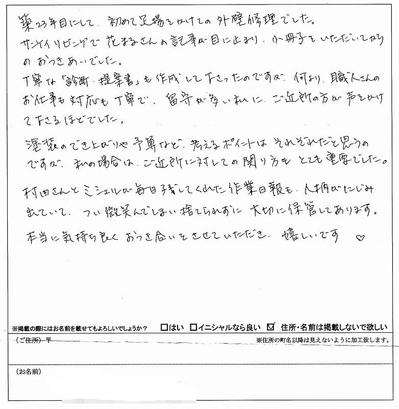 築23年目にして、初めて足場をかけての外壁修理でした。
サンケイリビングで花まるさんの記事が目に止まり、小冊子をいただいてからのおつきあいでした。
丁寧な「診断・提案書」も作成して下さったのですが、何より、職人さんのお仕事も対応も丁寧で、留守が多い私に、ご近所の方が声をかけて下さるほどでした。
塗装のでき上がりや予算など、考えるポイントはそれぞれだと思うのですが、私の場合は、ご近所に対しての関り方もとても重要でした。
村田さんとミシェルが毎日残してくれた作業日報も、人柄がにじみ出ていて、つい微笑んでしまい捨てられずに大切に保管してあります。
本当に気持ち良くおつき合いをさせていただき、嬉しいです ♡
※掲載の際にはお名前を載せてもよろしいでしょうか？ □はい □イニシャルなら良い ☑ 住所・名前は掲載しないで欲しい
（ご住所）〒 ※住所の町名以降は見えないように加工致します。
（お名前）